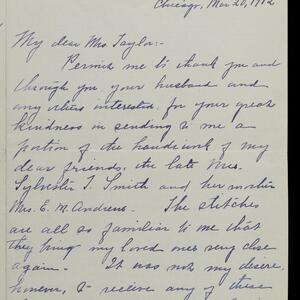 Chicago, Mar 20, 1912
My dear Mrs. Taylor:-
Permit me to thank you and
through you, your husband and
any others interested, for your great
kindness in sending to me a
portion of the handiwork of my
dear friends, the late Mrs.
Sylvester T. Smith and her sister
Mrs. E. M. Andrews. The stitches
are all so familiar to me that
they bring my loved ones very close
again. It was not my desire,
however, to receive any of these